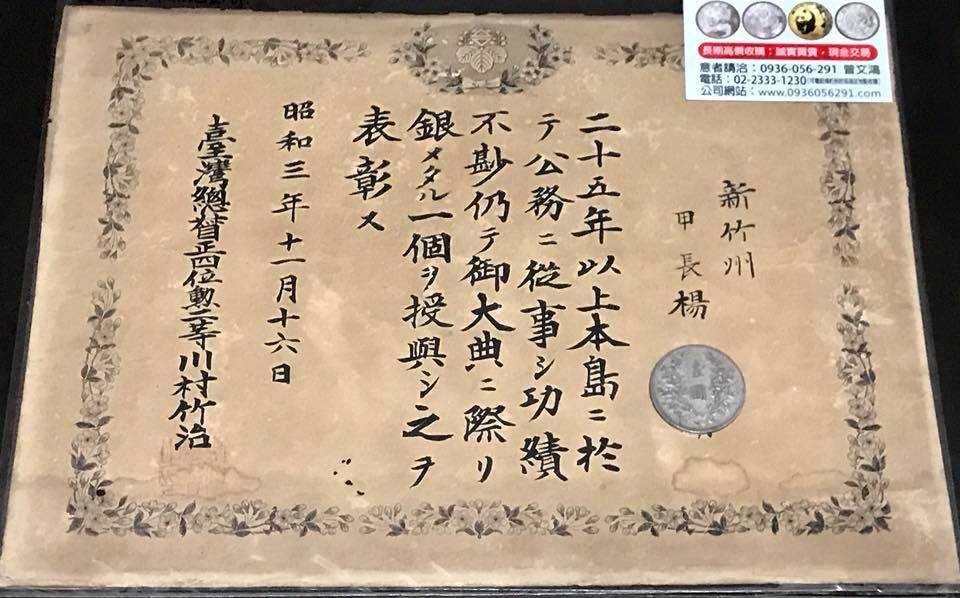 長期高價收購：誠實買賣，現金交易
意者請洽：0936-056-291 曾文鴻
電話：02-2333-1230
公司網站：www.0936056291.com
新竹州
甲長楊
二十五年以上本島ニ於
テ公務ニ從事シ功績
不尠仍テ御大典ニ際リ
銀メタル一個ヲ授與シ之ヲ
表彰ス
昭和三年十一月十六日
臺灣總督正四位勲二等川村竹治